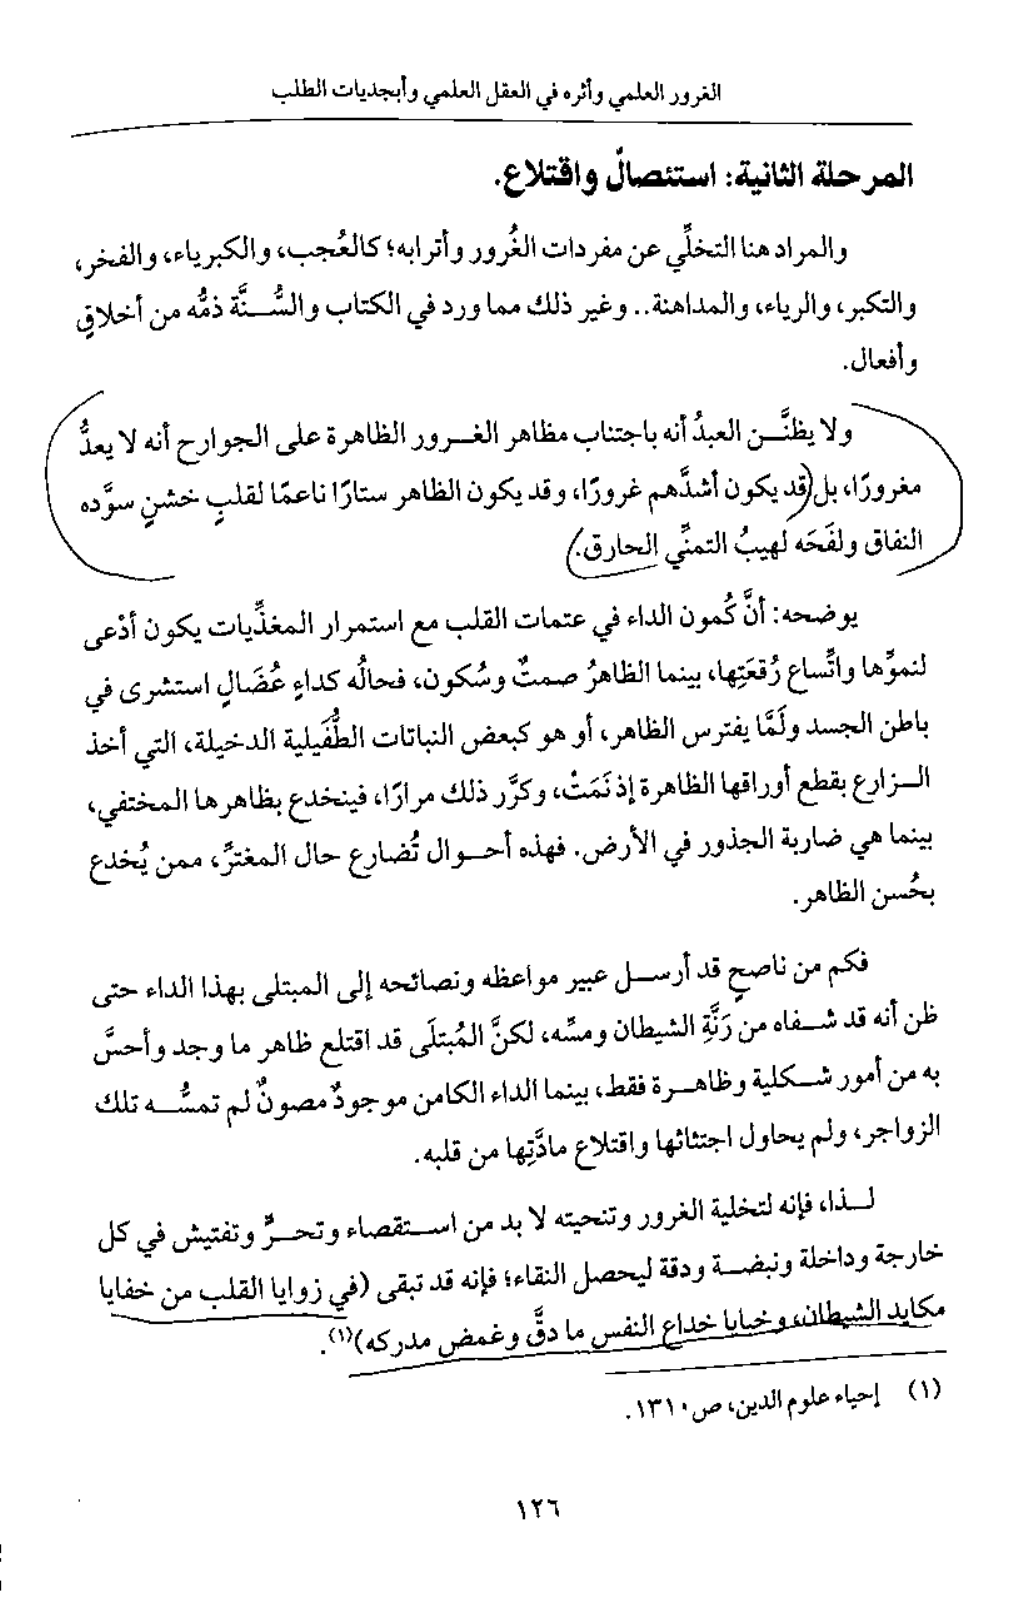 الغرور العلمي وأثره في العقل العلمي وأبجديات الطلب
المرحلة الثانية: استئصالٌ واقتلاع.
والمراد هنا التخلِّي عن مفردات الغُرور وأترابه؛ كالعُجب، والكبرياء، والفخر،
والتكبر، والرياء، والمداهنة.. وغير ذلك مما ورد في الكتاب والسُّنَّة ذمُّه من أخلاقٍ
وأفعال.
ولا يظنَّن العبدُ أنه باجتناب مظاهر الغرور الظاهرة على الجوارح أنه لا يعدُّ
مغرورًا، بل قد يكون أشدَّهم غرورًا، وقد يكون الظاهر ستارًا ناعمًا لقلبٍ خشنٍ سوَّده
النفاق ولفَحَه لهيبُ التمنِّي الحارق.
يوضحه: أنَّ كُمون الداء في عتمات القلب مع استمرار المغذِّيات يكون أدْعى
لنموِّها واتِّساع رُقعَتِها، بينما الظاهرُ صمتٌ وسُكون، فحالُه كداءٍ عُضَالٍ استشرى في
باطن الجسد ولَمَّا يفترس الظاهر، أو هو كبعض النباتات الطُّفَيلية الدخيلة، التي أخذ
الزارع بقطع أوراقها الظاهرة إذ نَمَتْ، وكرَّر ذلك مرارًا، فينخدع بظاهرها المختفي،
بينما هي ضاربة الجذور في الأرض. فهذه أحوال تُضارع حال المغترِّ، ممن يُخدع
بحُسن الظاهر.
فكم من ناصحٍ قد أرسل عبير مواعظه ونصائحه إلى المبتلى بهذا الداء حتى
ظن أنه قد شفاه من رَنَّةِ الشيطان ومسِّه، لكنَّ المُبتلَى قد اقتلع ظاهر ما وجد وأحسَّ
به من أمور شكلية وظاهرة فقط، بينما الداء الكامن موجودٌ مصونٌ لم تمسُّه تلك
الزواجر، ولم يحاول اجتثاثها واقتلاع مادَّتِها من قلبه.
لذا، فإنه لتخلية الغرور وتنحيته لا بد من استقصاء وتحرٍّ وتفتيش في كل
خارجة وداخلة ونبضة ودقة ليحصل النقاء؛ فإنه قد تبقى (في زوايا القلب من خفايا
مكايد الشيطان، وخبايا خداع النفس ما دقَّ وغمض مدركه)(١).
(١) إحياء علوم الدين، ص١٣١٠.
١٢٦